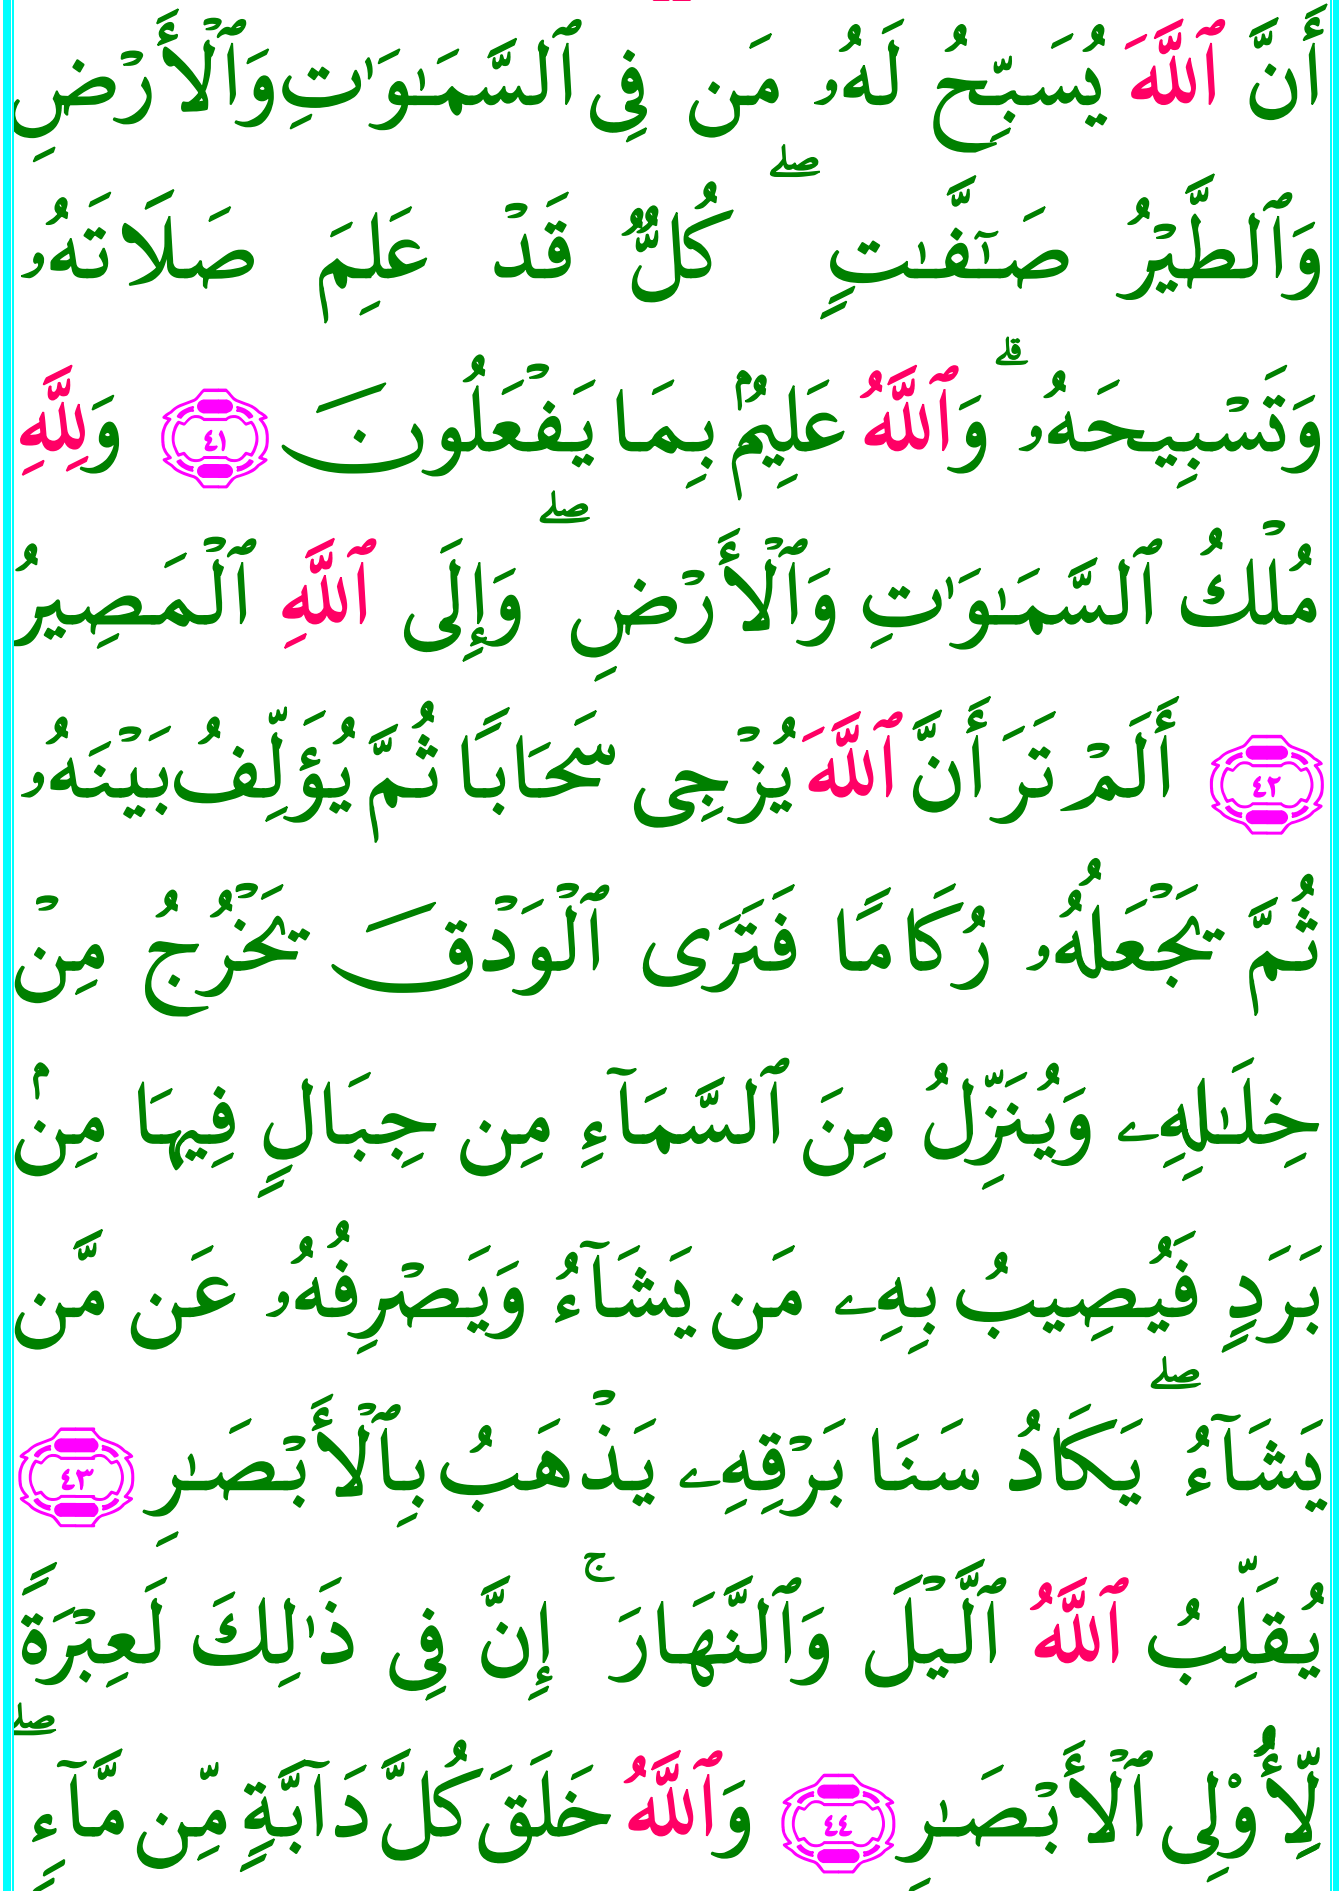 أَنَّ ٱللَّهَ يُسَبِّحُ لَهُۥ مَن فِى ٱلسَّمَـٰوَٰتِ وَٱلْأَرْضِ
وَٱلطَّيْرُ صَـٰٓفَّـٰتٍ ۖ كُلٌّ قَدْ عَلِمَ صَلَاتَهُۥ
وَتَسْبِيحَهُۥ ۗ وَٱللَّهُ عَلِيمٌۢ بِمَا يَفْعَلُونَ ٤١ وَلِلَّهِ
مُلْكُ ٱلسَّمَـٰوَٰتِ وَٱلْأَرْضِ ۖ وَإِلَى ٱللَّهِ ٱلْمَصِيرُ
٤٢ أَلَمْ تَرَ أَنَّ ٱللَّهَ يُزْجِى سَحَابًا ثُمَّ يُؤَلِّفُ بَيْنَهُۥ
ثُمَّ يَجْعَلُهُۥ رُكَامًا فَتَرَى ٱلْوَدْقَ يَخْرُجُ مِنْ
خِلَـٰلِهِۦ وَيُنَزِّلُ مِنَ ٱلسَّمَآءِ مِن جِبَالٍ فِيهَا مِنۢ
بَرَدٍ فَيُصِيبُ بِهِۦ مَن يَشَآءُ وَيَصْرِفُهُۥ عَن مَّن
يَشَآءُ ۖ يَكَادُ سَنَا بَرْقِهِۦ يَذْهَبُ بِٱلْأَبْصَـٰرِ ٤٣
يُقَلِّبُ ٱللَّهُ ٱلَّيْلَ وَٱلنَّهَارَ ۚ إِنَّ فِى ذَٰلِكَ لَعِبْرَةً
لِّأُو۟لِى ٱلْأَبْصَـٰرِ ٤٤ وَٱللَّهُ خَلَقَ كُلَّ دَآبَّةٍ مِّن مَّآءٍ ۖ